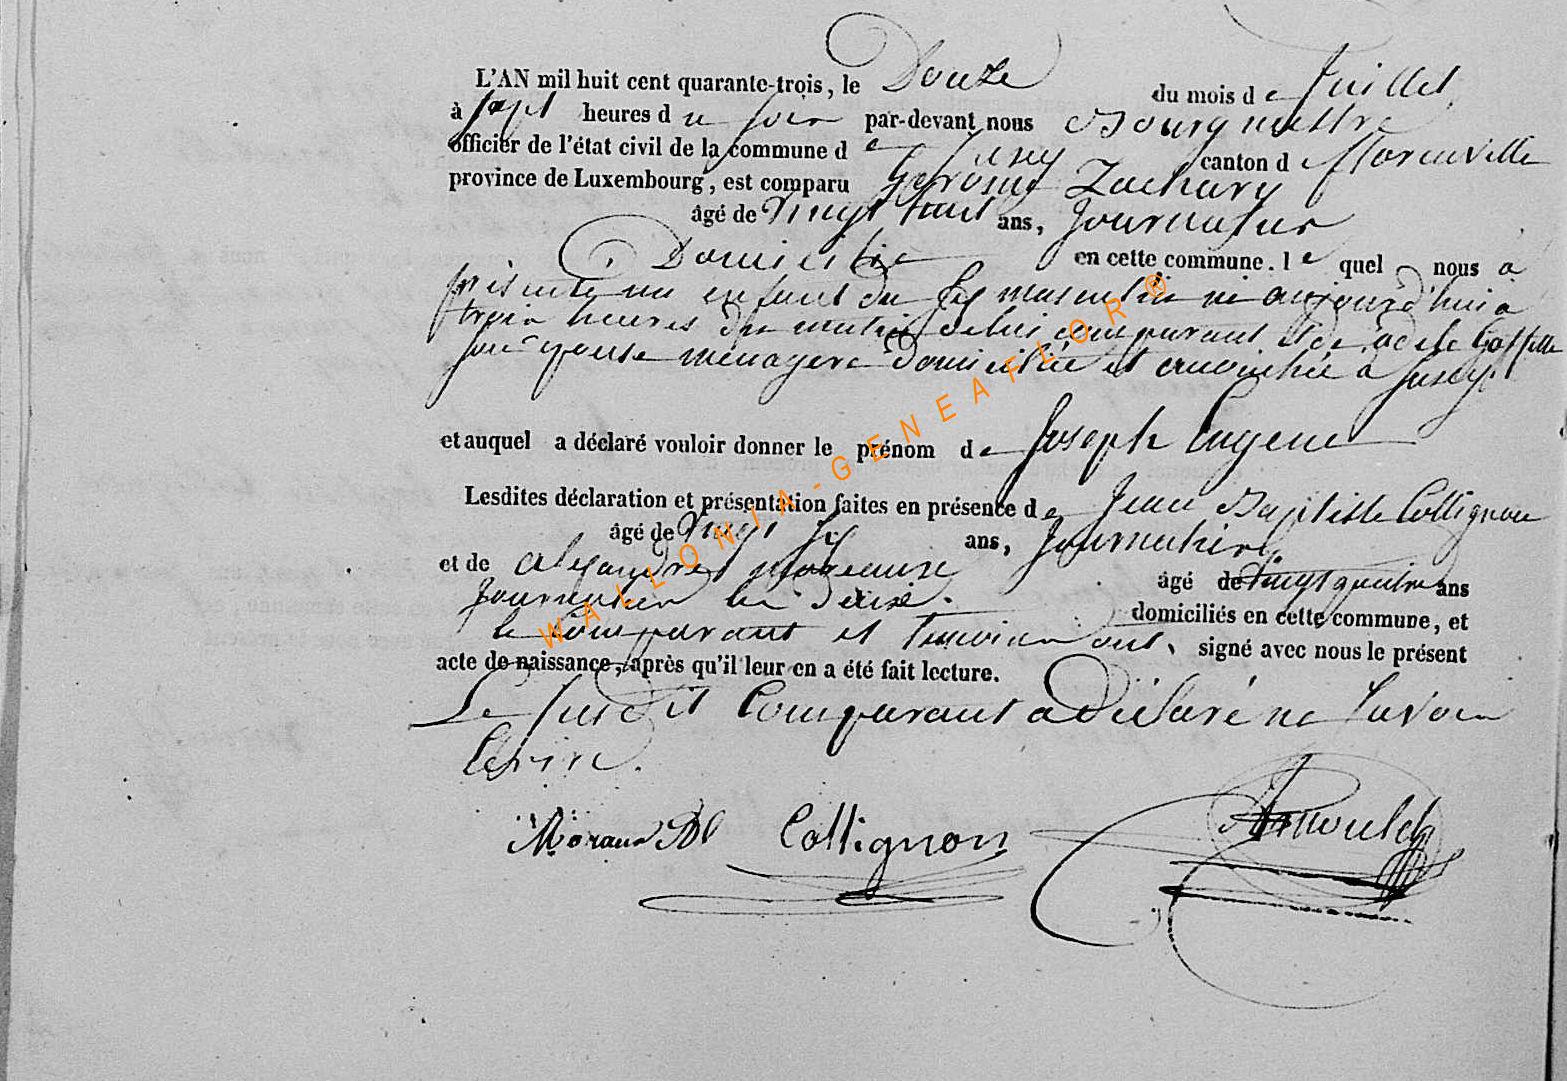 L'AN mil huit cent quarante-trois, le Douze du mois de Juillet
à sept heures du soir par-devant nous Bourgmestre
officier de l'état civil de la commune de Jusey canton de Florenville
province de Luxembourg, est comparu Gérome Zachary
âgé de vingt huit ans, Journalier
Domicilié en cette commune. lequel nous a
présenté un enfant du sex masculin né aujourd'hui à
trois heures du matin de lui comparant et de adele
son épouse ménagère Domiciliée et accouchée à Jusey
et auquel a déclaré vouloir donner le prénom de Joseph Eugene
Lesdites déclaration et présentation faites en présence de Jean Baptiste Collignon
âgé de vingt six ans, Journalier
et de alexandre âgé de vingt quatre ans
Journalier domiciliés en cette commune, et
le Comparant et temoins ont signé avec nous le présent
acte de naissance, après qu'il leur en a été fait lecture.
Le susdit Comparant a Déclaré ne savoir
Ecrire.
Collignon
WALLONIA-GENEAFLOR ®